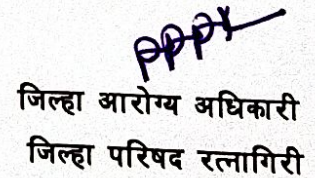 जिल्हा आरोग्य अधिकारी
जिल्हा परिषद रत्नागिरी